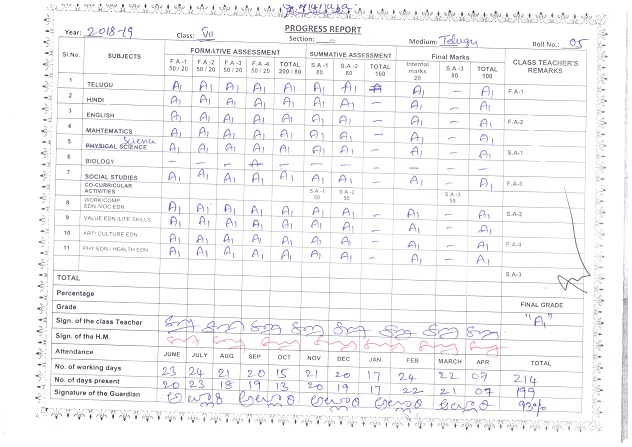 PROGRESS REPORT
Year: 2018-19 Class: VII Section: — Medium: Telugu Roll No.: 05
Sl.No. SUBJECTS FORMATIVE ASSESSMENT SUMMATIVE ASSESSMENT Final Marks CLASS TEACHER'S REMARKS
F.A -1 50 / 20 F.A -2 50 / 20 F.A -3 50 / 20 F.A -4 50 / 20 TOTAL 200 / 80 S.A -1 80 S.A -2 80 TOTAL 160 Internal marks 20 S.A -3 80 TOTAL 100
1 TELUGU A1 A1 A1 A1 A1 A1 A1 A1 – A1 F.A-1
2 HINDI A1 A1 A1 A1 A1 A1 A1 – A1 – A1
3 ENGLISH A1 A1 A1 A1 A1 A1 A1 – A1 – A1 F.A-2
4 MAHTEMATICS A1 A1 A1 A1 A1 A1 A1 – A1 – A1
5 PHYSICAL SCIENCE Science A1 A1 A1 A1 A1 A1 A1 – A1 – A1 S.A-1
6 BIOLOGY – – – – – – – – –
7 SOCIAL STUDIES A1 A1 A1 A1 A1 A1 A1 – A1 – A1 F.A-3
CO-CURRICULAR ACTIVITIES S.A -1 50 S.A -2 50 S.A -3 50
8 WORK/COMP. EDN /VOC EDN A1 A1 A1 A1 A1 A1 A1 – A1 – A1 S.A-2
9 VALUE EDN /LIFE SKILLS A1 A1 A1 A1 A1 A1 A1 – A1 – A1
10 ART/ CULTURE EDN A1 A1 A1 A1 A1 A1 A1 – A1 – A1 F.A-4
11 PHY EDN / HEALTH EDN A1 A1 A1 A1 A1 A1 A1 – A1 – A1
TOTAL S.A-3
Percentage FINAL GRADE
Grade "A1"
Sign. of the class Teacher
Sign. of the H.M.
Attendance JUNE JULY AUG SEP OCT NOV DEC JAN FEB MARCH APR TOTAL
No. of working days 23 24 21 20 15 21 20 17 24 22 07 214
No. of days present 20 23 18 19 13 20 19 17 22 21 07 199
Signature of the Guardian 93%